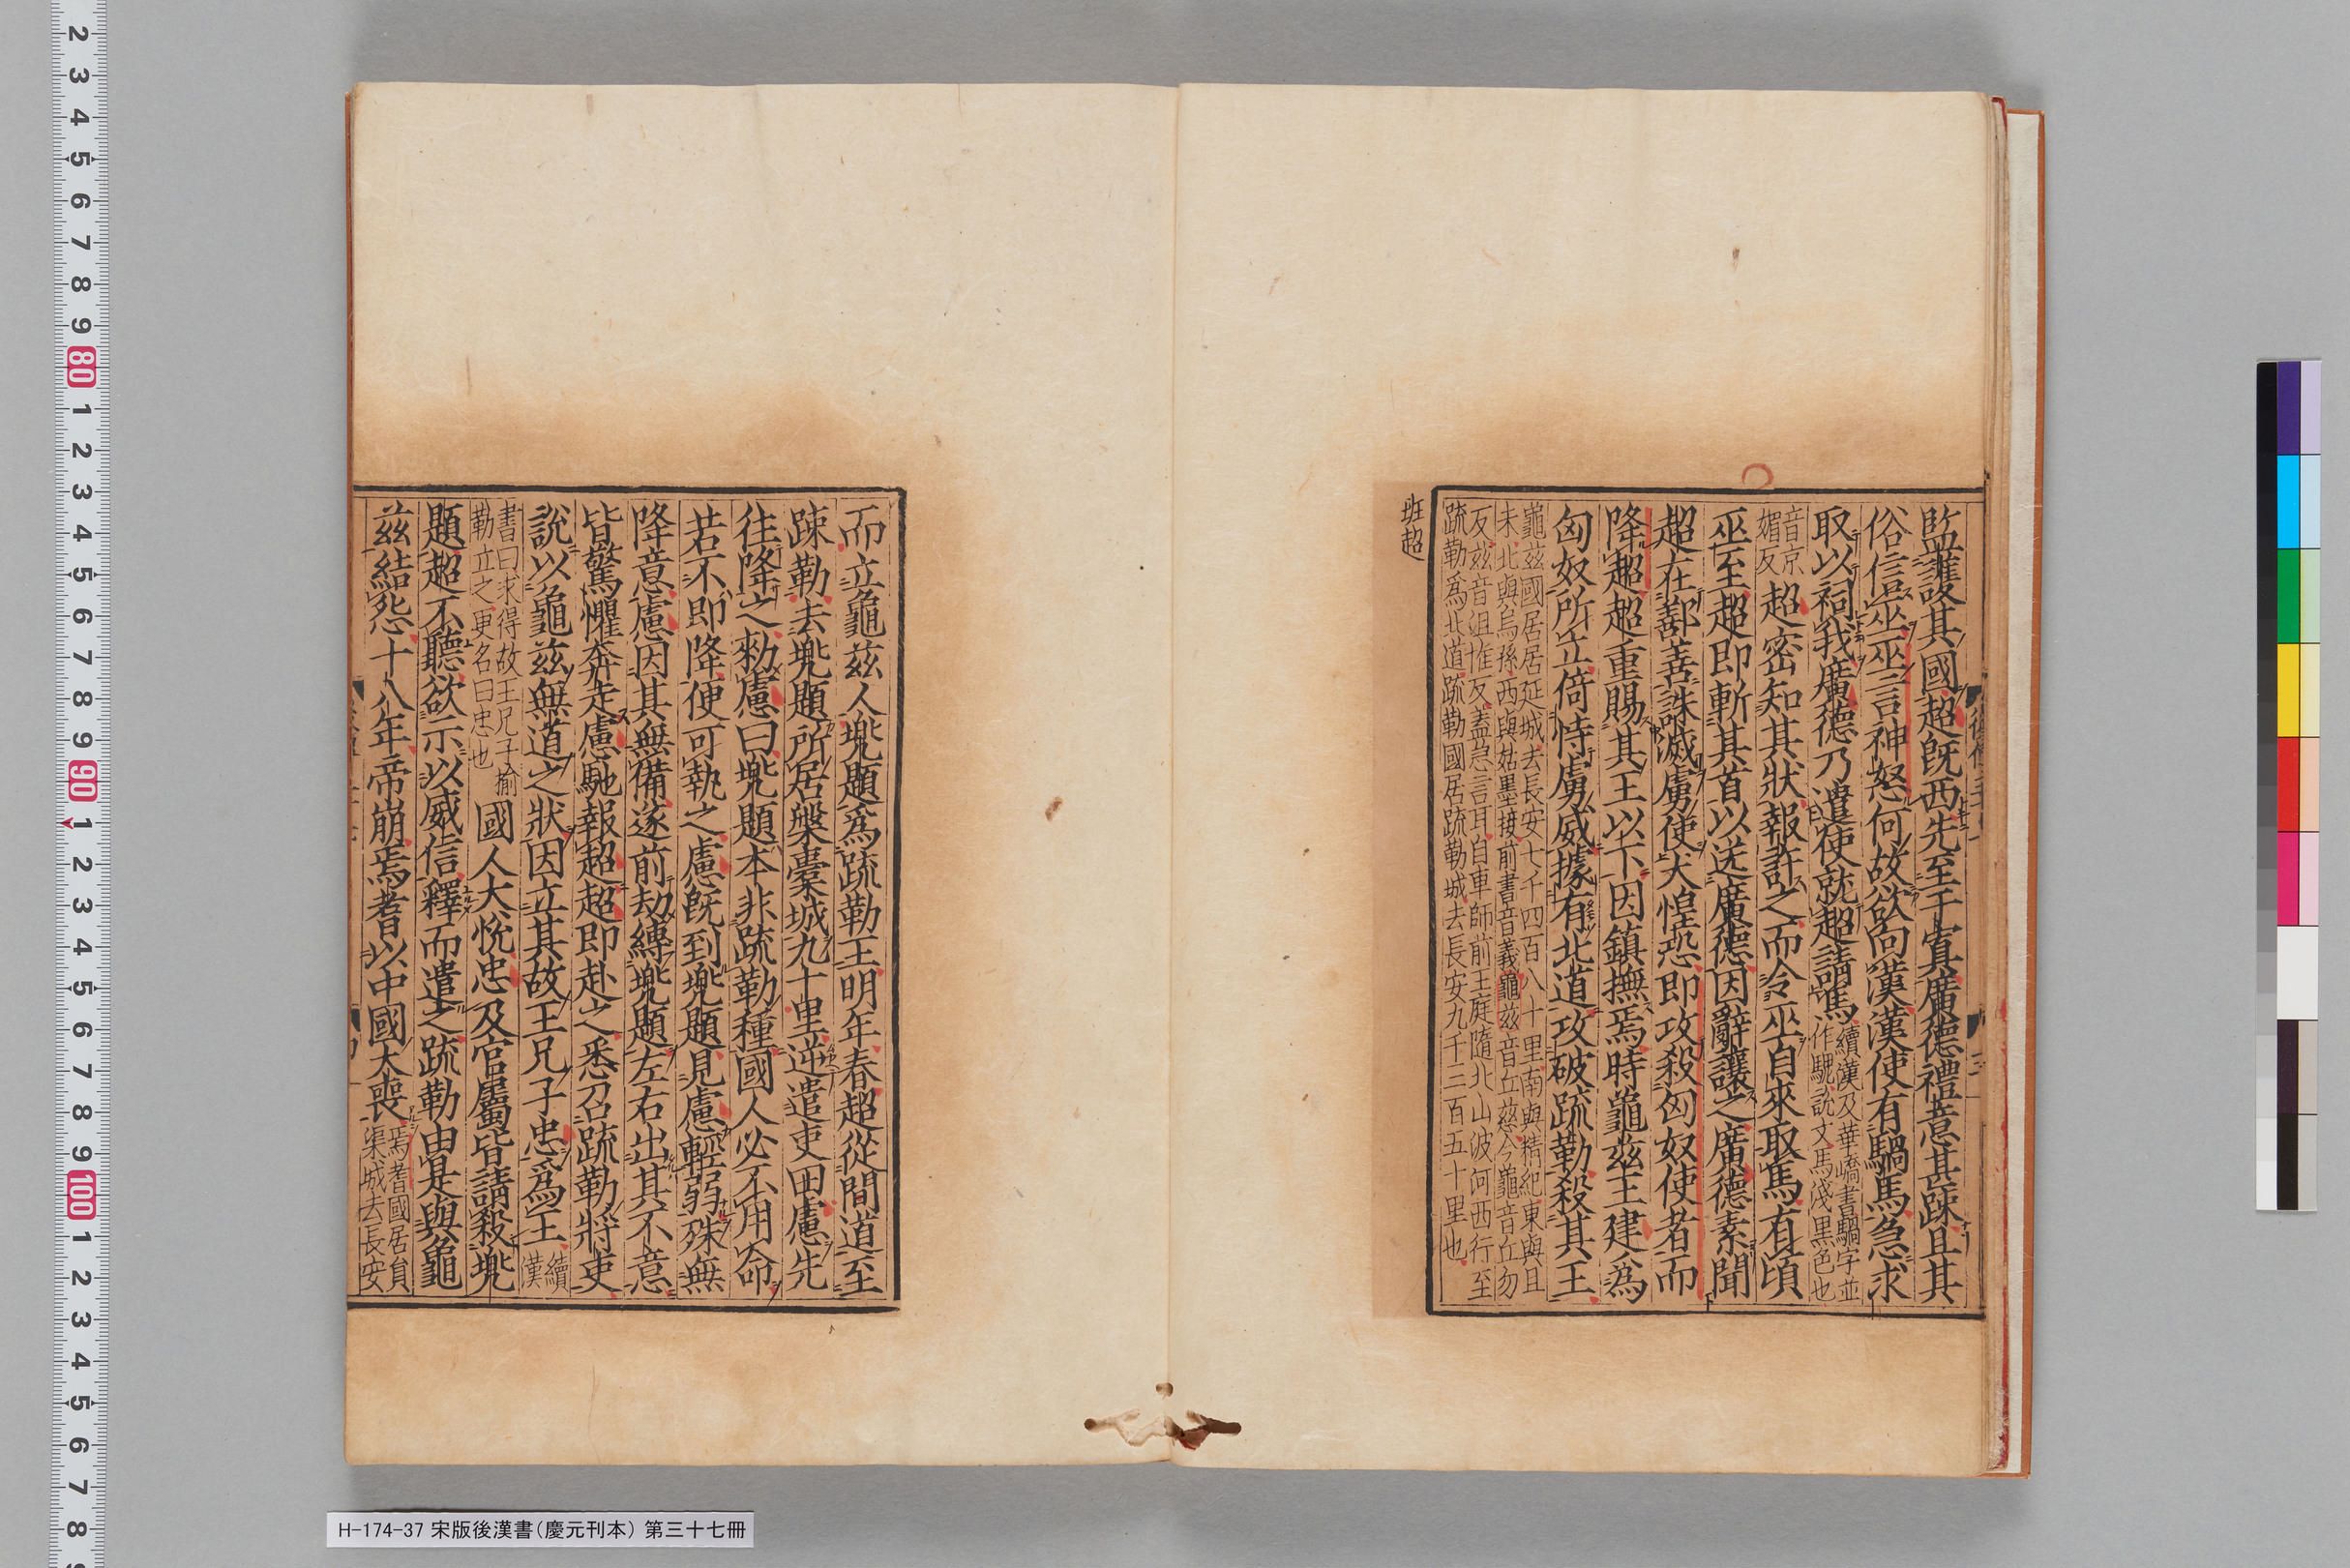 監護其國超既西先至于窴廣德禮意甚疎且其
俗信巫巫言神怒何故欲向漢漢使有騧馬急求
取以祠我廣德乃遣使就超請馬續漢及華嶠書騧字並
作騩說文馬淺黑色也
音京
媚反超密知其狀報許之而令巫自來取馬有頃
巫至超即斬其首以送廣德因辭讓之廣德素聞
超在鄯善誅滅虜使大惶恐即攻殺匈奴使者而
降超超重賜其王以下因鎮撫焉時龜茲王建爲
匈奴所立倚恃虜威據有北道攻破疏勒殺其王
龜茲國居居延城去長安七千四百八十里南與精絕東與且
末北與烏孫西與姑墨接前書音義龜茲音丘慈今龜音丘勿
反茲音沮惟反蓋急言耳自車師前王庭隨北山波河西行至
疏勒爲北道疏勒國居疏勒城去長安九千三百五十里也
班超
而立龜茲人兜題爲疏勒王明年春超從間道至
疎勒去兜題所居槃橐城九十里逆遣吏田慮先
往降之勑慮曰兜題本非疏勒種國人必不用命
若不即降便可執之慮既到兜題見慮輕弱殊無
降意慮因其無備遂前劫縛兜題左右出其不意
皆驚懼奔走慮馳報超超即赴之悉召疏勒將吏
說以龜茲無道之狀因立其故王兄子忠爲王續
漢
書曰求得故王兄子榆
勒立之更名曰忠也國人大悅忠及官屬皆請殺兜
題超不聽欲示以威信釋而遣之疏勒由是與龜
茲結怨十八年帝崩焉耆以中國大喪焉耆國居員
渠城去長安
H-174-37 宋版後漢書(慶元刊本) 第三十七冊